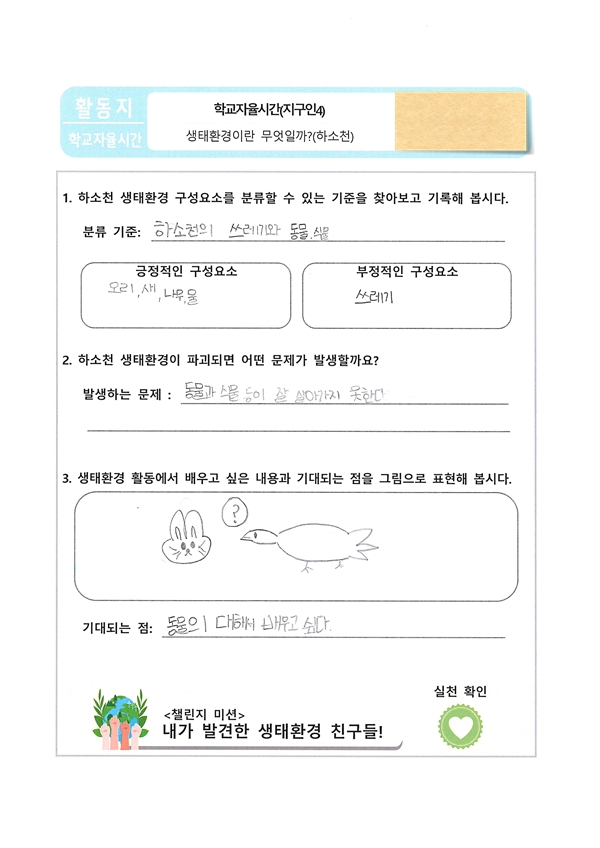 활동지
학교자율시간
학교자율시간(지구인4)
생태환경이란 무엇일까?(하소천)
1. 하소천 생태환경 구성요소를 분류할 수 있는 기준을 찾아보고 기록해 봅시다.
분류 기준: 하소천의 쓰레기와 동물,식물
긍정적인 구성요소
오리,새,나무,물
부정적인 구성요소
쓰레기
2. 하소천 생태환경이 파괴되면 어떤 문제가 발생할까요?
발생하는 문제 : 동물과 식물 등이 잘 살아가지 못한다
3. 생태환경 활동에서 배우고 싶은 내용과 기대되는 점을 그림으로 표현해 봅시다.
?
기대되는 점: 동물의 대해서 배우고 싶다.
실천 확인
<챌린지 미션>
내가 발견한 생태환경 친구들!